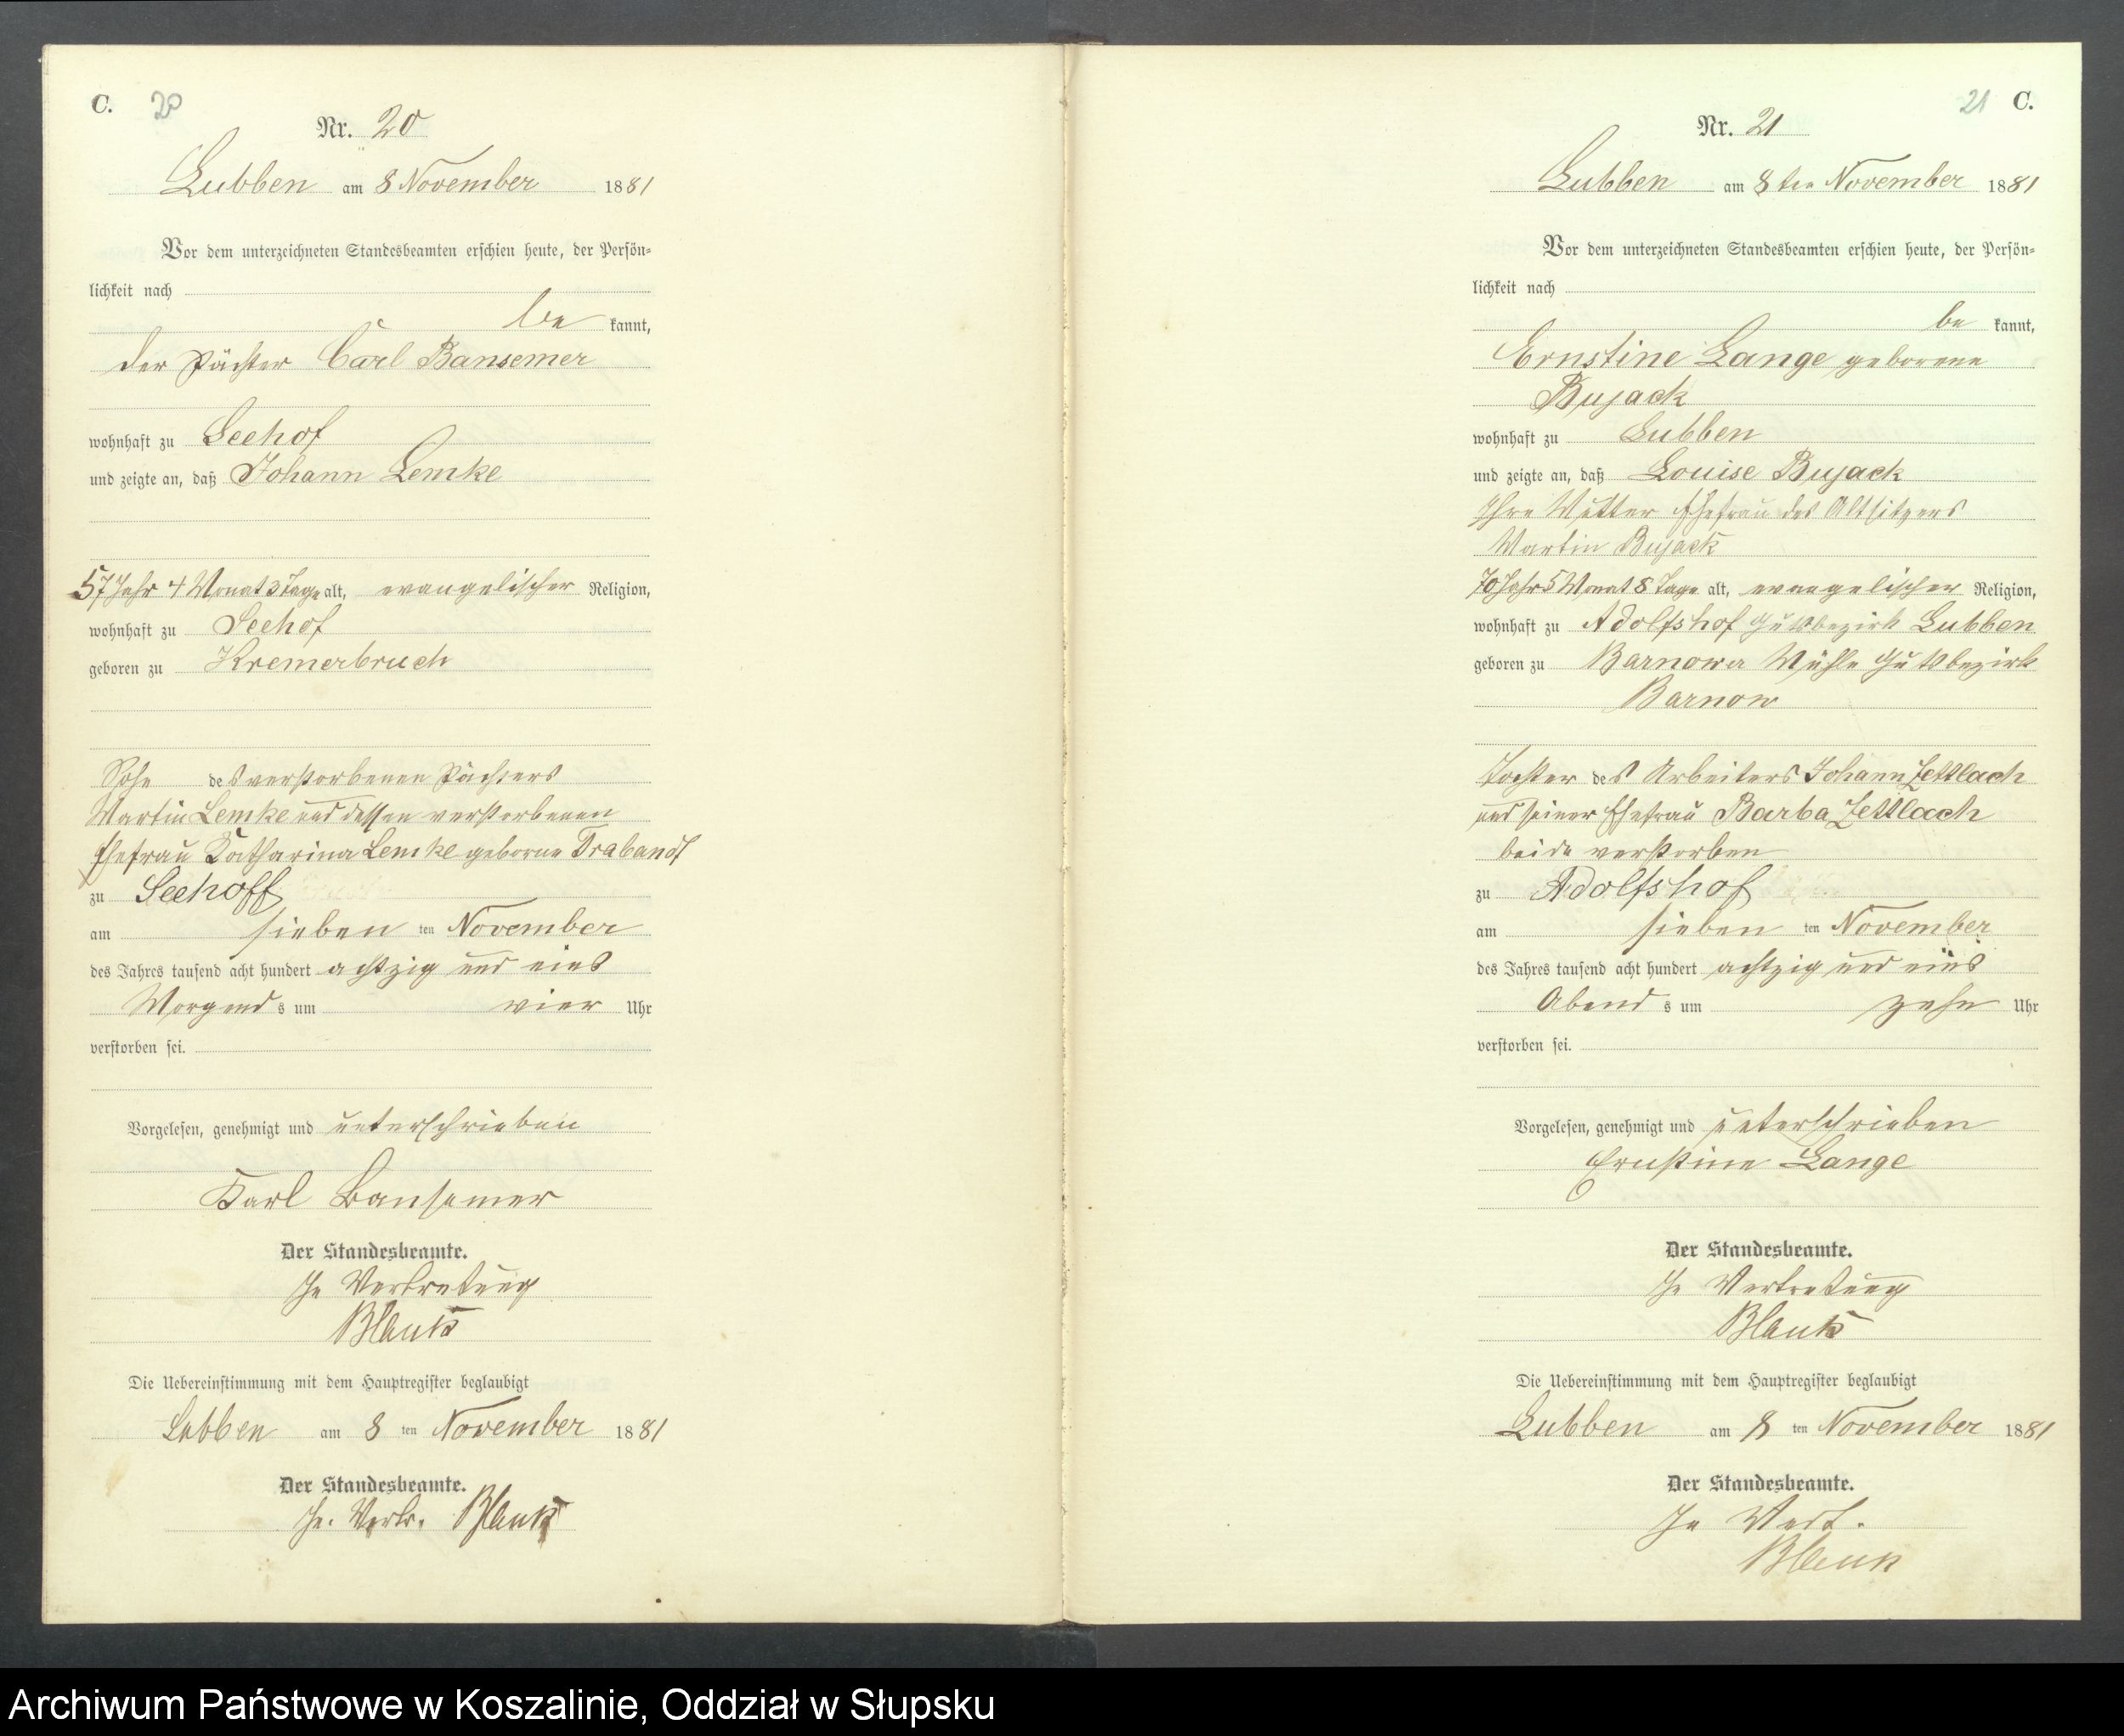 C. 20
Nr. 20
Lubben am 8 November 1881
Vor dem unterzeichneten Standesbeamten erschien heute, der Persön-
lichkeit nach
be kannt,
der Pächter Carl Bansemer
wohnhaft zu Seehof
und zeigte an, daß Johann Lemke
57 Jahr 4 Monat 3 Tage alt, evangelischer Religion,
wohnhaft zu Seehof
geboren zu Kremerbruch
Sohn des verstorbenen Pächters
Martin Lemke und dessen verstorbenen
Ehefrau Katharina Lemke geborne Trabandt
zu Seehoff
am sieben ten November
des Jahres tausend acht hundert achtzig und eins
Morgends um vier Uhr
verstorben sei.
Vorgelesen, genehmigt und unterschrieben
Karl Bansemer
Der Standesbeamte.
In Vertretung
Blank
Die Uebereinstimmung mit dem Hauptregister beglaubigt
Lubben am 8 ten November 1881
Der Standesbeamte.
In. Vertr. Blank
21 C.
Nr. 21
Lubben am 8ten November 1881
Vor dem unterzeichneten Standesbeamten erschien heute, der Persön-
lichkeit nach
be kannt,
Ernstine Lange geborene
Bujack
wohnhaft zu Lubben
und zeigte an, daß Louise Bujack
Ihre Mutter Ehefrau des Altsitzers
Martin Bujack
70 Jahr 5 Monat 8 Tage alt, evangelischer Religion,
wohnhaft zu Adolfshof Gutsbezirk Lubben
geboren zu Barnower Mühle Gutsbezirk
Barnow
Tochter des Arbeiters Johann Zettlach
und seiner Ehefrau Barba Zettlach
beide verstorben
zu Adolfshof
am sieben ten November
des Jahres tausend acht hundert achtzig und eins
Abends um zehn Uhr
verstorben sei.
Vorgelesen, genehmigt und unterschrieben
Ernstine Lange
Der Standesbeamte.
In Vertretung
Blank
Die Uebereinstimmung mit dem Hauptregister beglaubigt
Lubben am 8 ten November 1881
Der Standesbeamte.
In Vert.
Blank
Archiwum Państwowe w Koszalinie, Oddział w Słupsku